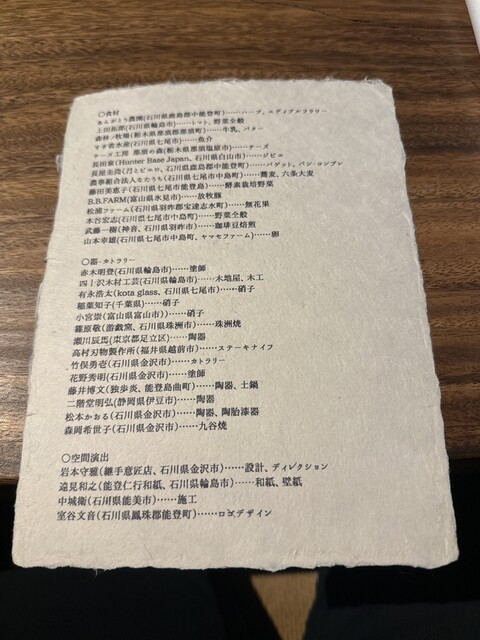 ○食材
あんがとう農園(石川県鹿島郡中能登町)……ハーブ、エディブルフラワー
上田拓郎(石川県輪島市)……トマト、野菜全般
森林ノ牧場(栃木県那須郡那須町)……牛乳、バター
(石川県七尾市)……魚介
チーズ工房 那須の森(栃木県那須塩原市)……チーズ
長田泉(Hunter Base Japan、石川県白山市)……ジビエ
長屋圭尚(月とピエロ、石川県鹿島郡中能登町)……バゲット、パン・コンプレ
農事組合法人なたうち(石川県七尾市中島町)……蕎麦、六条大麦
藤田美恵子(石川県七尾市能登島)……酵素栽培野菜
B.B.FARM(富山県氷見市)……放牧豚
松浦ファーム(石川県羽咋郡宝達志水町)……無花果
本谷宏志(石川県七尾市中島町)……野菜全般
武藤一樹(神音、石川県羽咋市)……珈琲豆焙煎
山本幸雄(石川県七尾市中島町、ヤマセファーム)……卵
○器・カトラリー
赤木明登(石川県輪島市)……塗師
四十沢木材工芸(石川県輪島市)……木地屋、木工
有永浩太(kota glass、石川県七尾市)……硝子
稲葉知子(千葉県)……硝子
小宮崇(富山県富山市))……硝子
篠原敬(游戯窯、石川県珠洲市)……珠洲焼
瀬川辰馬(東京都足立区)……陶器
高村刃物製作所(福井県越前市)……ステーキナイフ
竹俣勇壱(石川県金沢市)……カトラリー
花野秀明(石川県金沢市)……塗師
藤井博文(独歩炎、能登島曲町)……陶器、土鍋
二階堂明弘(静岡県伊豆市)……陶器
松本かおる(石川県金沢市)……陶器、陶胎漆器
森岡希世子(石川県金沢市)……九谷焼
○空間演出
岩本守雅(継手意匠店、石川県金沢市)……設計、ディレクション
遠見和之(能登仁行和紙、石川県輪島市)……和紙、壁紙
中城衛(石川県能美市)……施工
室谷文音(石川県鳳珠郡能登町)……ロゴデザイン